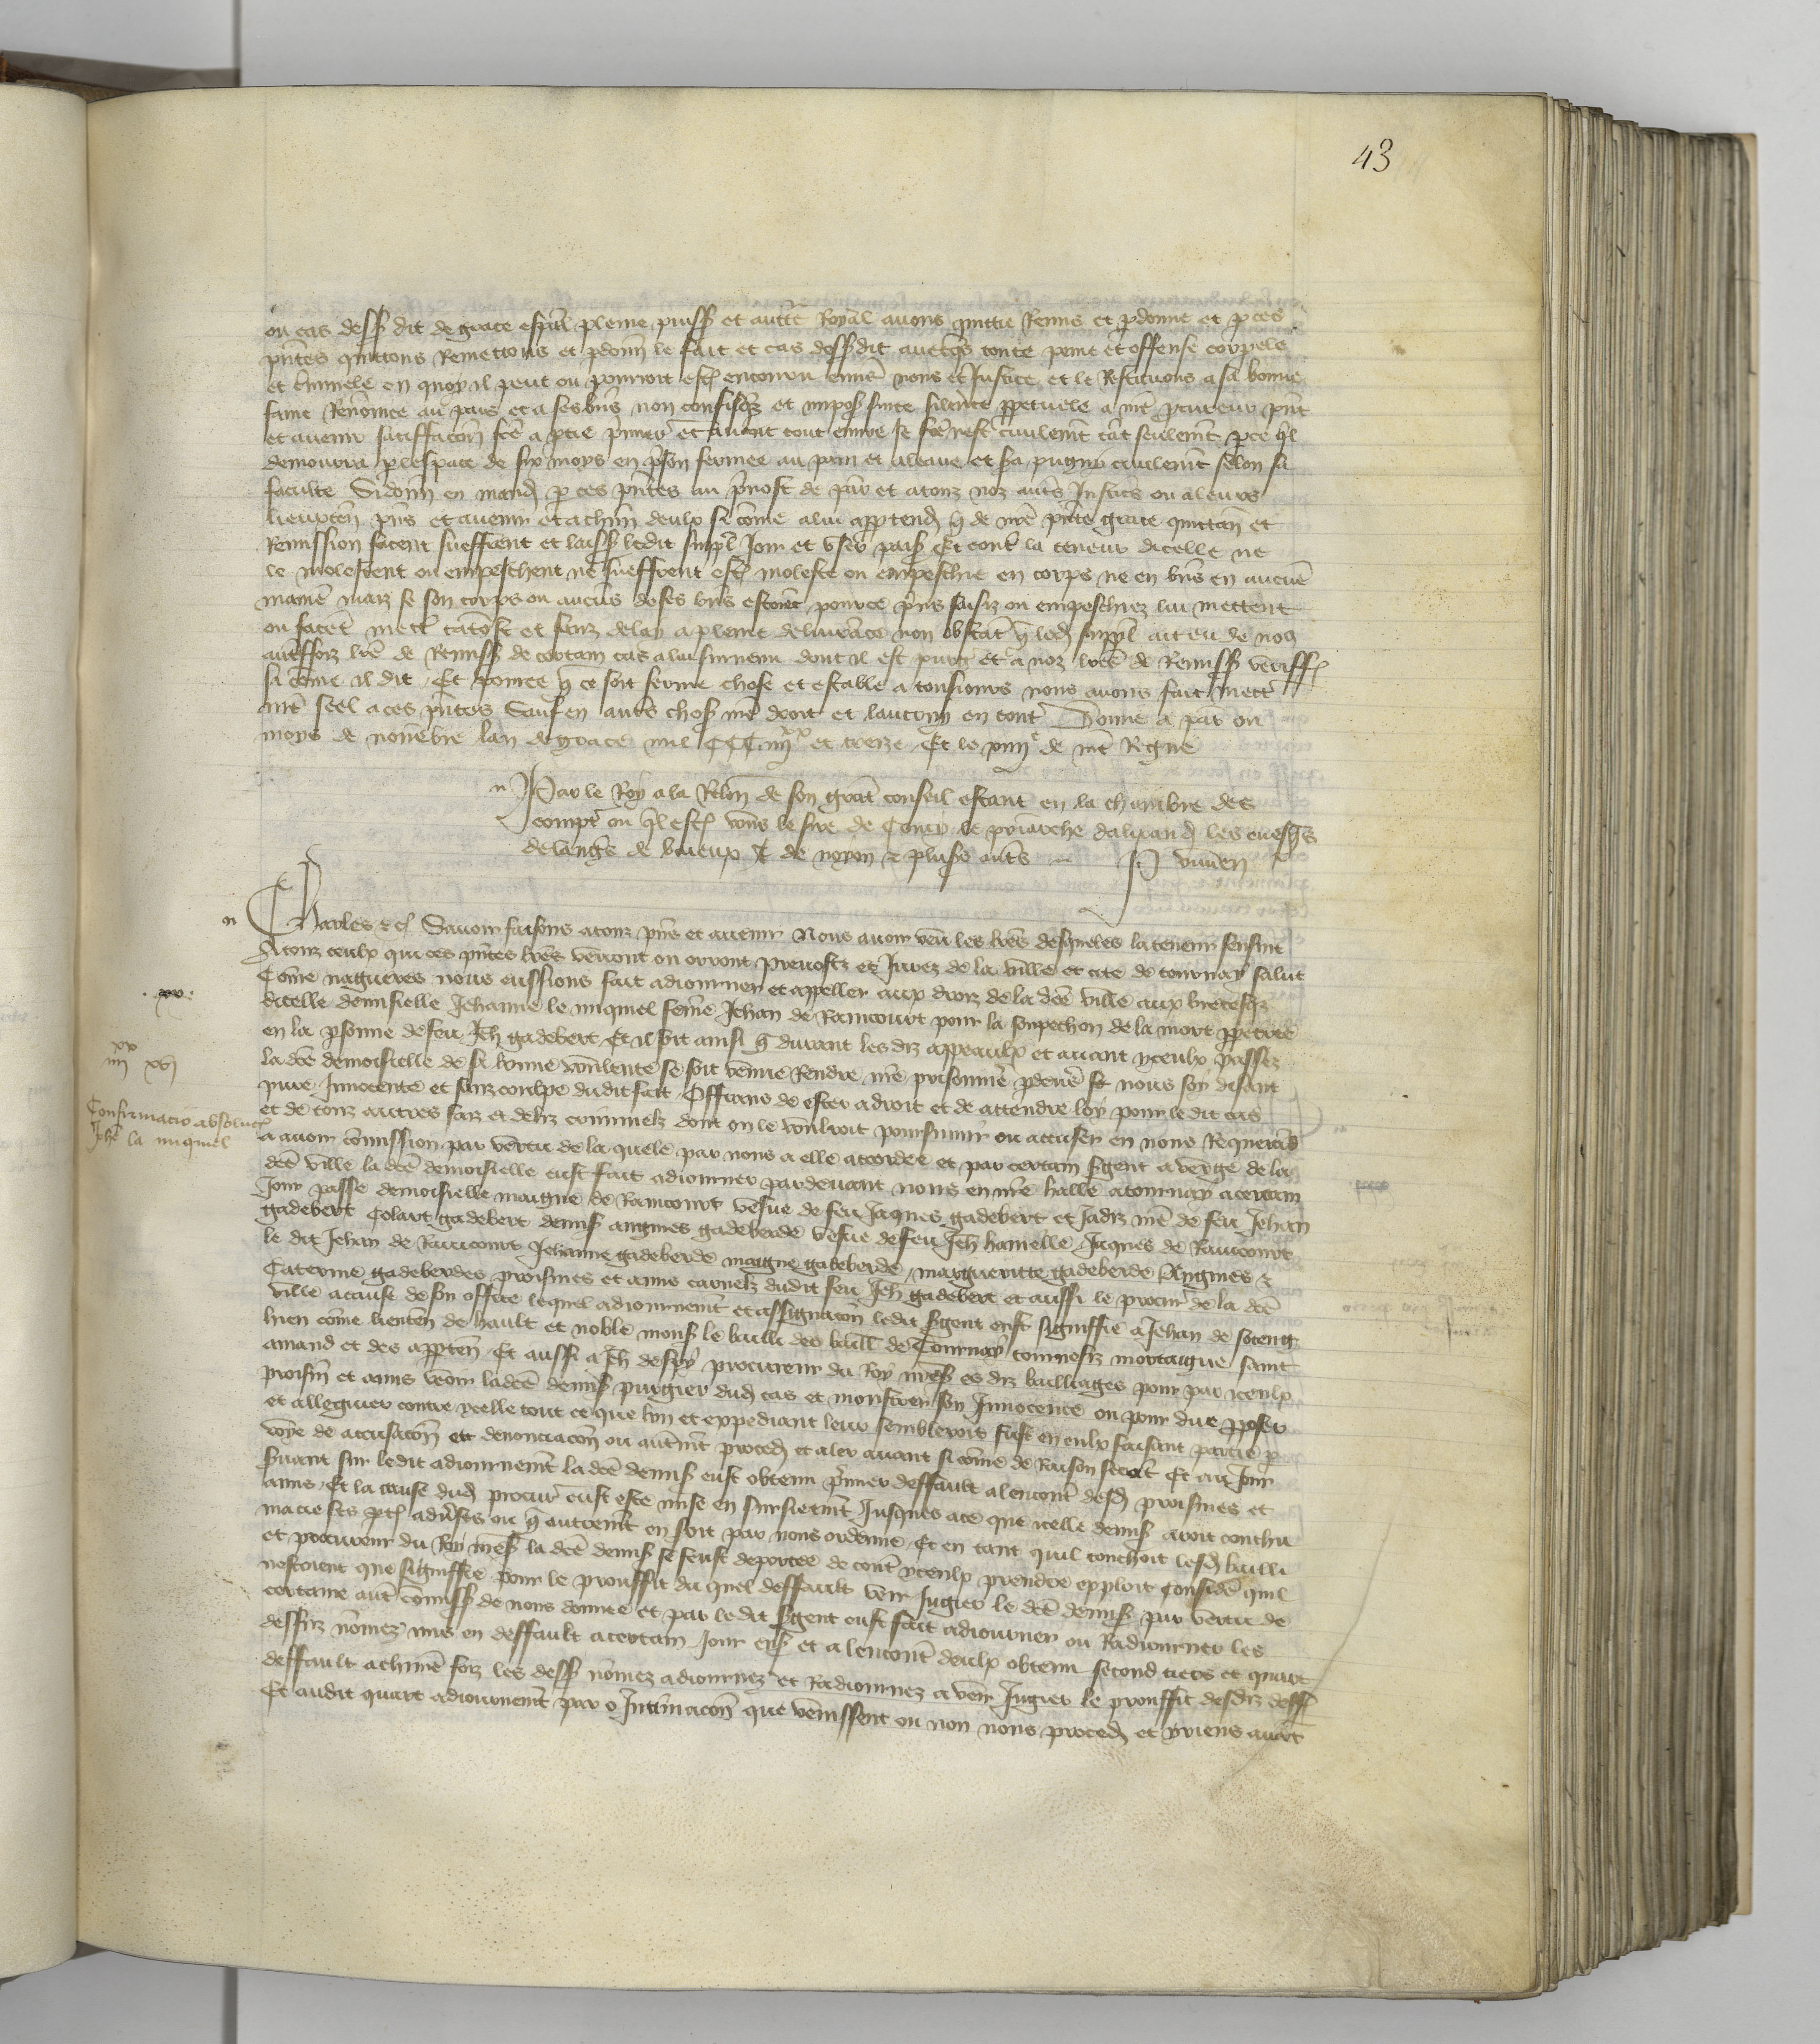 43
ou cas dess dit de grace espal pleine puiss et autte Royal avons quittie Remis et pdonne et p ces
pntes quittons Remettons et pdonn le fait et cas dessdit avecqs toute peine et offense corpele
et criminele en quoy il peut ou pourroit estre encouru envers nous et Justice et le Restituons a sa bonne
fame Renomee au pais et a ses biens non confisqz et impos sur ce silence ppetuele a nre pcureur pnt
et avenir satisfaccon fce a ptie pmier et avant tout euvre se fce nest civilemt tat seulemt pce ql
demourra p lespace de six moys en pson fermee au pain et a leaue et sa pugny civilemt selon sa
faculte Si donn en mand p ces pntes au prevost de par et a touz noz autres Justic ou a leurs
lieuxten pns et avenir et a chun deulx si come a lui apptend q de nre pnte grace quittan et
Remission facent sueffrent et laiss ledit suppl Joir et user paisi Et cont la teneur dicelle ne
le molestent ou empeschent ne sueffrent estre moleste ou empeschie en corps ne en biens en aucune
maniere maiz se son corps ou aucuns de ses biens estoient pource pris saisiz ou empeschiez lui mettent
ou facet mettre tatost et sanz delay a pleine delivrance non obstat q led suppl ait eu de nos
autreffoiz lre de Remiss de certain cas a lui survenu dont il est purg et a noz lres de Remiss veriff
si come il dit Et pource q ce soit ferme chose et estable a tousiours nous avons fait mettre
nre seel a ces pntes Sauf en autres chos nre droit et lautruy en tout Donne a par ou
moys de novebre lan de grace mil CCC iiij xx et treze Et le xiiije de nre Regne
Par le Roy a la Relon de son grat conseil estant en la chambre des
compt ou ql estre vous le sire de Coucy le priarche dalixand les evesqs
de langs de baieux et de noyon & pluss autres P vivien
Charles &c Savoir faisons a touz pns et avenir Nous avoir veu les lres desqueles la teneur sensuit
A touz ceulx qui ces pntes lres verront ou orront prevostz et Jurez de la ville et cite de tournay salut
Come nagueres nous eussions fait adiourner et appeller aux droiz de la dce ville aux bretesqz
dicelle demisielle Jehanne le miquiel feme Jehan de Raincourt pour la souppechon de la mort ppetree
en la psonne de feu Jeh gadebert Et il soit ainsi q durant les diz appeaulx et avant yceulx passez
la dce demoisielle de sa bonne voulente se soit venue Rendre nre prisonniere pdevers nous soy disant
pure Innocente et sanz coulpe dudit fait Offrans de ester a droit et de attendre loy pour le dit cas
et de touz autres faiz et deliz criminelz dont on le vouldroit poursuivir ou accuser en nous Requerat
a avoir comission par vertu de la quele par nous a elle accordee et par certain Sgent a verge de la
dce ville la dce demoisielle eust fait adiourner pardevant nous en nre halle a tournay a certain
Jour passe demoisielle maigne de Raincourt vesve de feu Jaques gadebert et Jadiz mere de feu Jehan
gadebert Colart gadebert demis angnes gadeberde vesve de feu Jeh hamelle Jaques de Raincourt
le dit Jehan de Raincourt Jehanne gadeberde maigne gadeberde margueritte gadeberde Angnes &
Caterine gadeberdes proismes et amis carnelz dudit feu Jeh gadebert et aussi le procur de la dce
ville a cause de son office lequel adiournemt et assignacon ledit Sgent eust signiffie a Jehan de soteng
hien come lieuten de hault et noble mons le bailli des baill de Tournay tournesiz mortaigne saint
amand et des appten Et aussi a Jeh despy procureur du Roy nres es diz bailliages pour par iceulx
proism et amis veoir ladce demis purgier dud cas et monstrer son Innocence ou pour dire pposer
et alleguier contre ycelle tout ce que bon et expediant leur sembleroit fust en eulx faisant partie p
voye de accusacon et denonciacon ou autremt proced et aler avant si come de Raison seroit Et au Jour
Suvant sur ledit adiournemt la dce demis eust obtenu pmier deffault alencont desd proismes et
amis Et la cause dud procur eust este mise en sursietemt Jusques ace que icelle demis avoit conclu
nacie ses pt advses ou q autremt en soit par nous ordonne Et en tant quil touchoit lesd bailli
et procureur du Roy nres la dce demis se feust deportee de cont yceulx prendre exploit Considere quil
nestoient que signiffie pour le prouffit du quel deffault veir Jugier le dce demis par vertu de
certaine autre comiss de nous donnee et par ledit Sgent eust fait adiourner ou Radiourner les
dessuz nomez mis en deffault a certain Jour ens et alencont deulx obtenu second tiers et quart
deffault achune foiz les dess nomez adiournez et Radiournez a veoir Jugier le prouffit desdiz deff
Et audit quart adiournemt par o Intimacon que venissent ou non nous proced et yriens avat
xv
iiij xx xvj
Confirmacio absoluc
Johe la miquiel